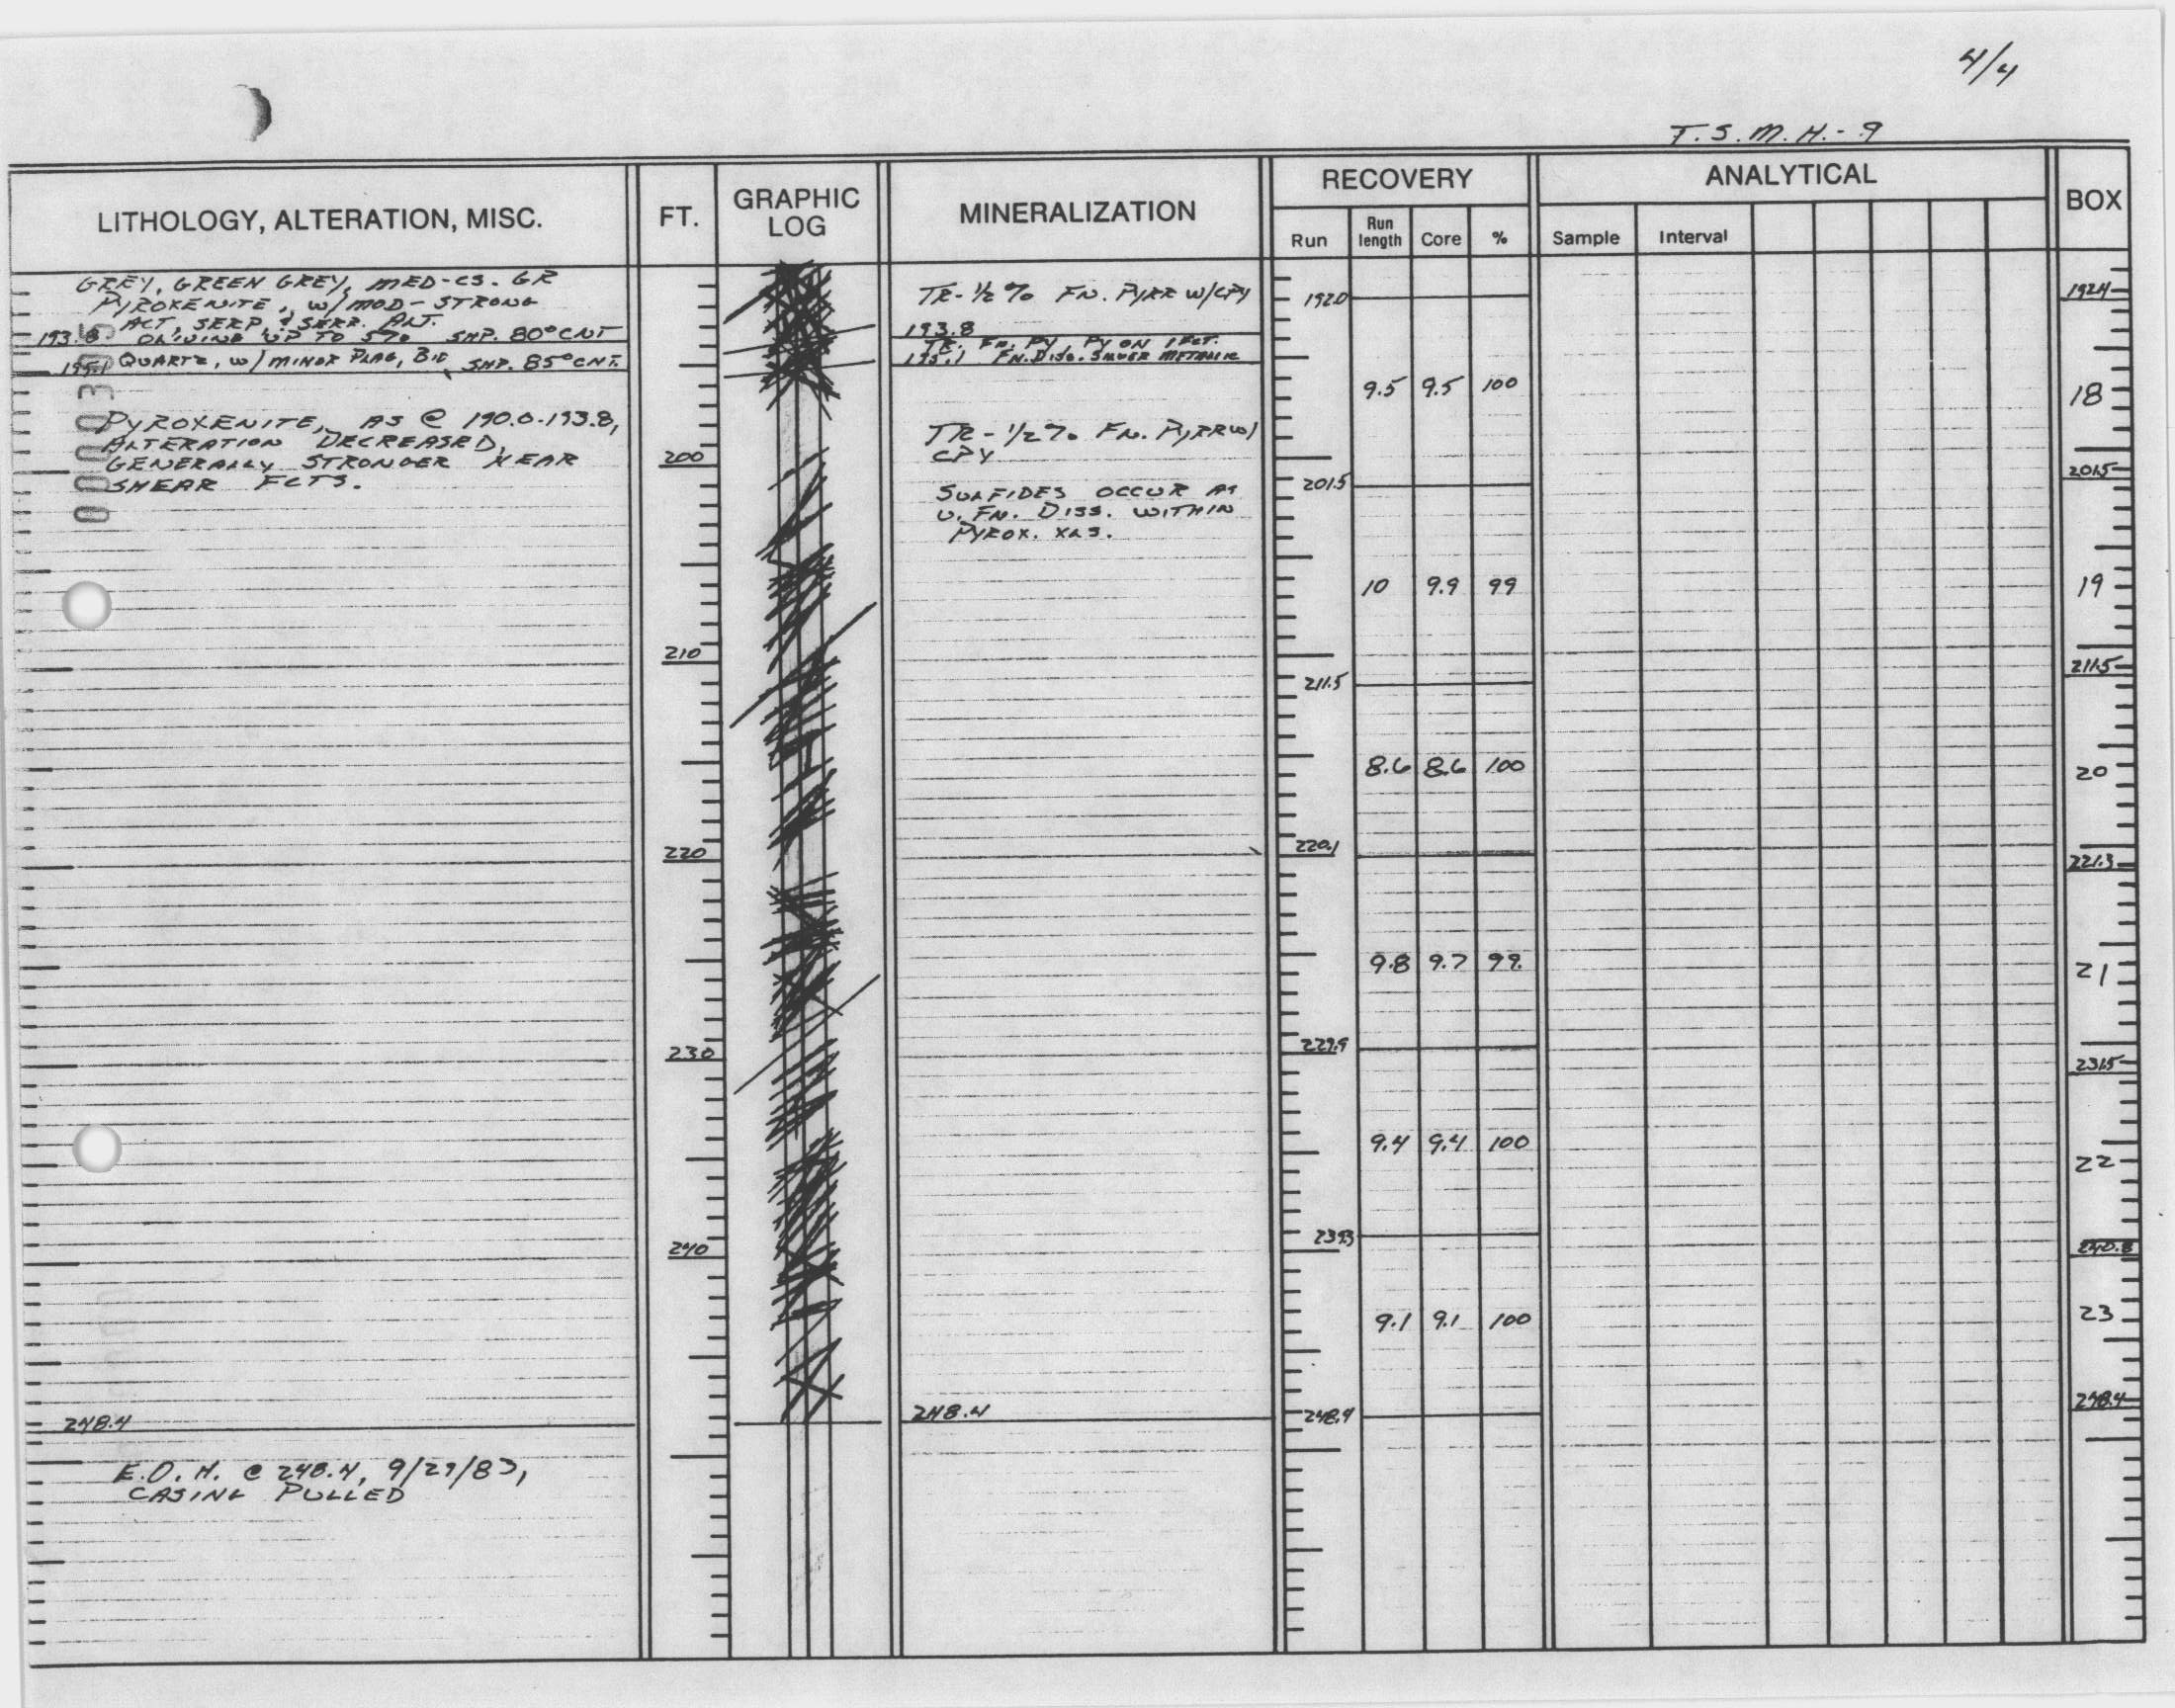 4/4
T.S.M.H.-9
LITHOLOGY, ALTERATION, MISC.
FT.
GRAPHIC
LOG
MINERALIZATION
RECOVERY
Run
Run
length
Core
%
ANALYTICAL
Sample
Interval
BOX
GREY, GREEN GREY, MED-CS. GR
PYROXENITE, W/MOD-STRONG
ACT, SERP, & SERP. ALT.
193.8 OLIVINE UP TO 5% SHP. 80° CNT
195.1 QUARTZ, W/MINOR PLAG, BIO, SHP. 85° CNT.
PYROXENITE, AS @ 190.0-193.8,
ALTERATION DECREASED,
GENERALLY STRONGER NEAR
SHEAR FCTS.
248.4
E.O.H. @ 248.4, 9/29/83,
CASING PULLED
200
210
220
230
240
TR-1/2% FN. PYRR W/CPY
193.8
TR. FN. PY, PY ON 1 FCT.
195.1 FN. DISS. SILVER METALLIC
TR-1/2% FN. PYRR W/
CPY
SULFIDES OCCUR AS
V. FN. DISS. WITHIN
PYROX. XLS.
248.4
192.0
9.5 9.5 100
201.5
10 9.9 99
211.5
8.6 8.6 100
220.1
9.8 9.7 99
229.9
9.4 9.4 100
239.3
9.1 9.1 100
248.4
192.4
18
201.5
19
211.5
20
221.3
21
231.5
22
240.8
23
248.4